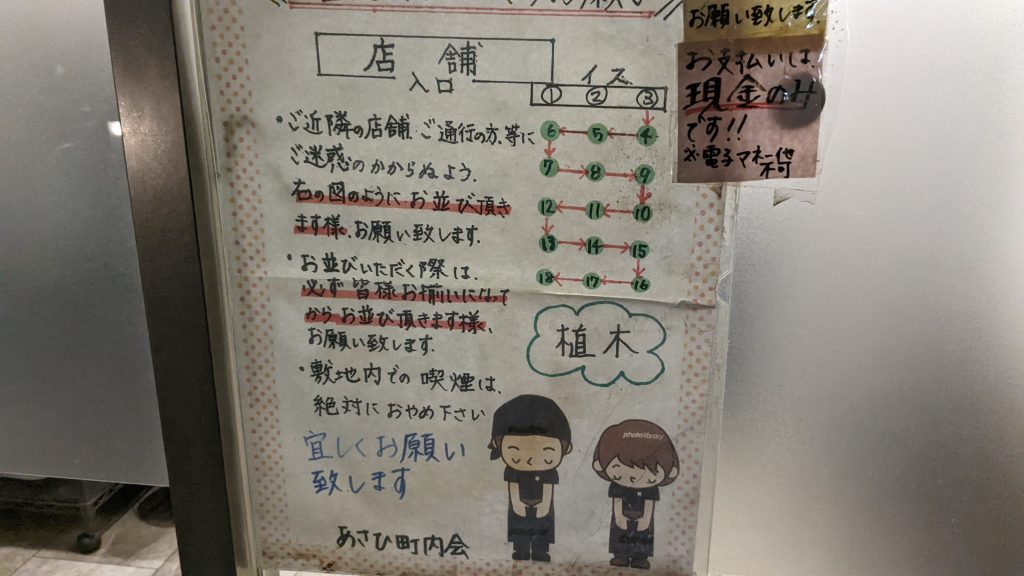 お願い致します。
お支払いは、
現金のみ
です!!
※電子マネー
不可
店舗
入口
イス
① ② ③
6 5 4
7 8 9
12 11 10
13 14 15
18 17 16
・ご近隣の店舗・ご通行の方、等に
ご迷惑のかからぬよう、
右の図のようにお並び頂き
ます様、お願い致します。
・お並びいただく際は、
必ず皆様お揃いになって
からお並び頂きます様、
お願い致します。
・敷地内での喫煙は、
絶対におやめ下さい
宜しくお願い
致します
植木
photolibrary
あさひ町内会